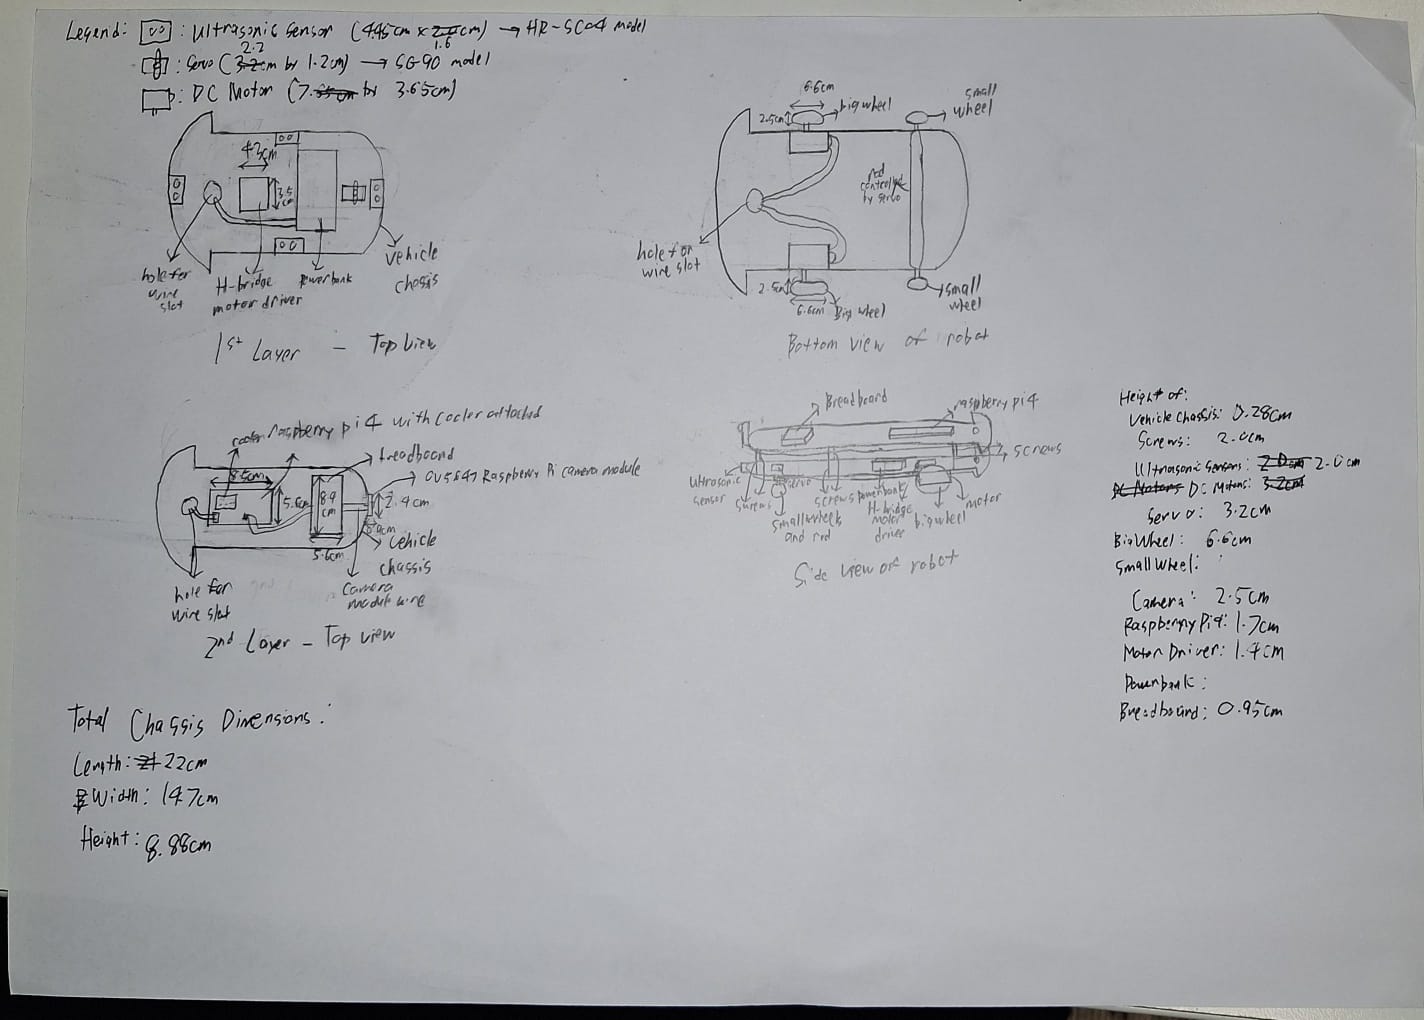 Legend: : Ultrasonic Sensor (4.45cm x cm) → HR-SC04 model
1.6
2.2
: Servo ( cm by 1.2cm) → SG-90 model
: DC Motor (7. by 3.65cm)
4.3cm
3.5
cm
hole for
wire
slot
H-bridge
motor driver
Powerbank
vehicle
chassis
1st Layer - Top View
6.6cm
2.5cm
big wheel
small
wheel
rod
controlled
by servo
hole for
wire slot
2.5cm
6.6cm
Big wheel
small
wheel
Bottom view of robot
cooler
raspberry pi 4 with cooler attached
breadboard
OV5647 Raspberry Pi camera module
8.5cm
5.6cm
8.9
cm
2.4cm
5.6cm
vehicle
chassis
hole for
wire slot
camera
module wire
2nd Layer - Top view
Breadboard
raspberry pi 4
screws
ultrasonic
sensor
screws
servo
small wheels
and rod
screws
powerbank
H-bridge
motor
driver
big wheel
motor
Side view of robot
Height of:
Vehicle Chassis: 0.28cm
Screws: 2.0cm
Ultrasonic Sensors: 2.0cm 2.0cm
DC Motors DC Motors: 3.2cm
Servo: 3.2cm
Big Wheel: 6.6cm
Small Wheel:
Camera: 2.5cm
Raspberry Pi 4: 1.7cm
Motor Driver: 1.4cm
Powerbank:
Breadboard: 0.95cm
Total Chassis Dimensions:
Length: 21 22cm
Width: 14.7cm
Height: 8.88cm